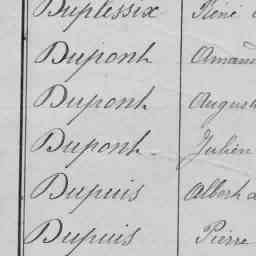 Duplessix René
Dupont Amand
Dupont August
Dupont Julien
Dupuis Albert
Dupuis Pierre